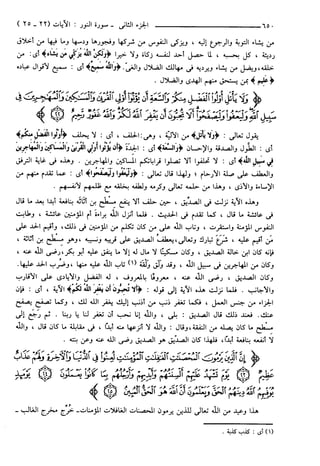 ٦٥٠ ــــــ الجزء الثاني ـ سورة النور : الآيات (٢٢ ـ ٢٥)
من يشاء التوبة والرجوع إليه ، ويزكي النفوس من شركها وفجورها ودسها وما فيها من أخلاق
رديئة ، كل بحسبه ، لما حصل أحد لنفسه زكاة ولا خيرا ﴿ولكن الله يزكي من يشاء﴾ أي: من
خلقه، ويضل من يشاء ويرديه في مهالك الضلال والغي. ﴿والله سميع﴾ أي : سميع لأقوال عباده
﴿عليم﴾ بمن يستحق منهم الهدى والضلال .
﴿ولا يأتل أولوا الفضل منكم والسعة أن يؤتوا أولي القربى والمساكين والمهاجرين
في سبيل الله وليعفوا وليصفحوا ألا تحبون أن يغفر الله لكم والله غفور رحيم (٢٢)﴾
يقول تعالى : ﴿ولا يأتل﴾ من الألية ، وهي: الحلف ، أي : لا يحلف ﴿أولوا الفضل منكم﴾
أي : الطول والصدقة والإحسان ﴿والسعة﴾ أي : الجدة ﴿أن يؤتوا أولي القربى والمساكين والمهاجرين
في سبيل الله﴾ أي : لا تحلفوا ألا تصلوا قراباتكم المساكين والمهاجرين . وهذه في غاية الترفق
والعطف على صلة الأرحام ، ولهذا قال تعالى : ﴿وليعفوا وليصفحوا﴾ أي : عما تقدم منهم من
الإساءة والأذى ، وهذا من حلمه تعالى وكرمه ولطفه بخلقه مع ظلمهم لأنفسهم .
وهذه الآية نزلت في الصديق ، حين حلف ألا ينفع مسطح بن أثاثة بنافعة أبدا بعد ما قال
في عائشة ما قال ، كما تقدم في الحديث . فلما أنزل الله براءة أم المؤمنين عائشة ، وطابت
النفوس المؤمنة واستقرت ، وتاب الله على من كان تكلم من المؤمنين في ذلك ، وأقيم الحد على
من أقيم عليه ، شرع تبارك وتعالى، يعطف الصديق على قريبه ونسيبه ، وهو مسطح بن أثاثة ،
فإنه كان ابن خالة الصديق ، وكان مسكينا لا مال له إلا ما ينفق عليه أبو بكر، رضي الله عنه ،
وكان من المهاجرين في سبيل الله ، وقد ولق ولقة (١) تاب الله عليه منها ، وضرب الحد عليها.
وكان الصديق ، رضي الله عنه ، معروفا بالمعروف ، له الفضل والأيادي على الأقارب
والأجانب . فلما نزلت هذه الآية إلى قوله : ﴿ألا تحبون أن يغفر الله لكم﴾ الآية ، أي : فإن
الجزاء من جنس العمل ، فكما تغفر ذنب من أذنب إليك يغفر الله لك ، وكما تصفح يصفح
عنك. فعند ذلك قال الصديق : بلى ، والله إنا نحب أن تغفر لنا يا ربنا . ثم رجع إلى
مسطح ما كان يصله من النفقة، وقال : والله لا أنزعها منه أبدا ، في مقابلة ما كان قال ، والله
لا أنفعه بنافعة أبدا، فلهذا كان الصديق هو الصديق رضي الله عنه وعن بنته .
﴿إن الذين يرمون المحصنات الغافلات المؤمنات لعنوا في الدنيا والآخرة ولهم عذاب
عظيم (٢٣) يوم تشهد عليهم ألسنتهم وأيديهم وأرجلهم بما كانوا يعملون (٢٤)
يومئذ يوفيهم الله دينهم الحق ويعلمون أن الله هو الحق المبين (٢٥)﴾
هذا وعيد من الله تعالى للذين يرمون المحصنات الغافلات المؤمنات ـ خرج مخرج الغالب ـ
(١) أي : كذب كذبة .